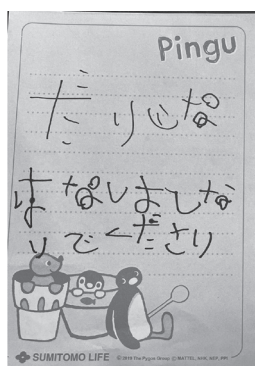 Pingu
だいじな
はなしはしな
いでください
SUMITOMO LIFE © 2019 The Pygos Group